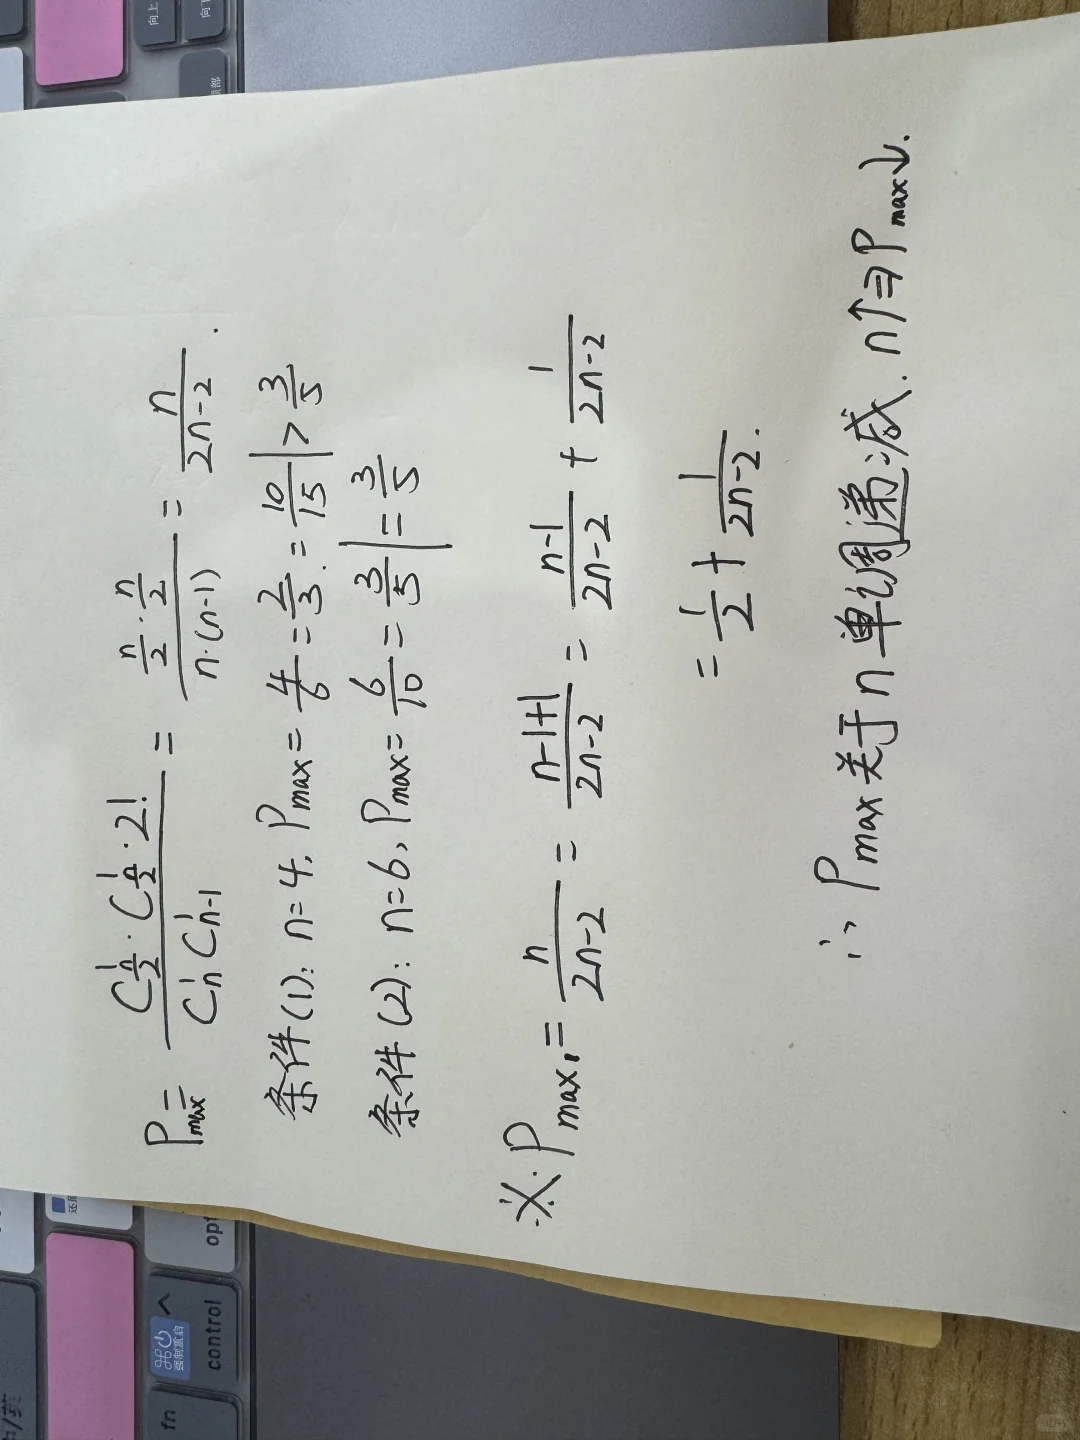 P_max = \frac{C_{\frac{n}{2}}^{1} \cdot C_{\frac{n}{2}}^{1} \cdot 2!}{C_{n}^{1} C_{n-1}^{1}} = \frac{\frac{n}{2} \cdot \frac{n}{2}}{n \cdot (n-1)} = \frac{n}{2n-2}.
条件(1): n=4, P_max = \frac{4}{6} = \frac{2}{3}. = \frac{10}{15} | > \frac{3}{5}
条件(2): n=6, P_max = \frac{6}{10} = \frac{3}{5} | = \frac{3}{5}
※. P_max, = \frac{n}{2n-2} = \frac{n-1+1}{2n-2} = \frac{n-1}{2n-2} + \frac{1}{2n-2}
= \frac{1}{2} + \frac{1}{2n-2}.
∴ P_max关于n单调递减. n↑⇒P_max↓.
向上
向下
fn
control
⌘
强制重启
^
opt
中/英